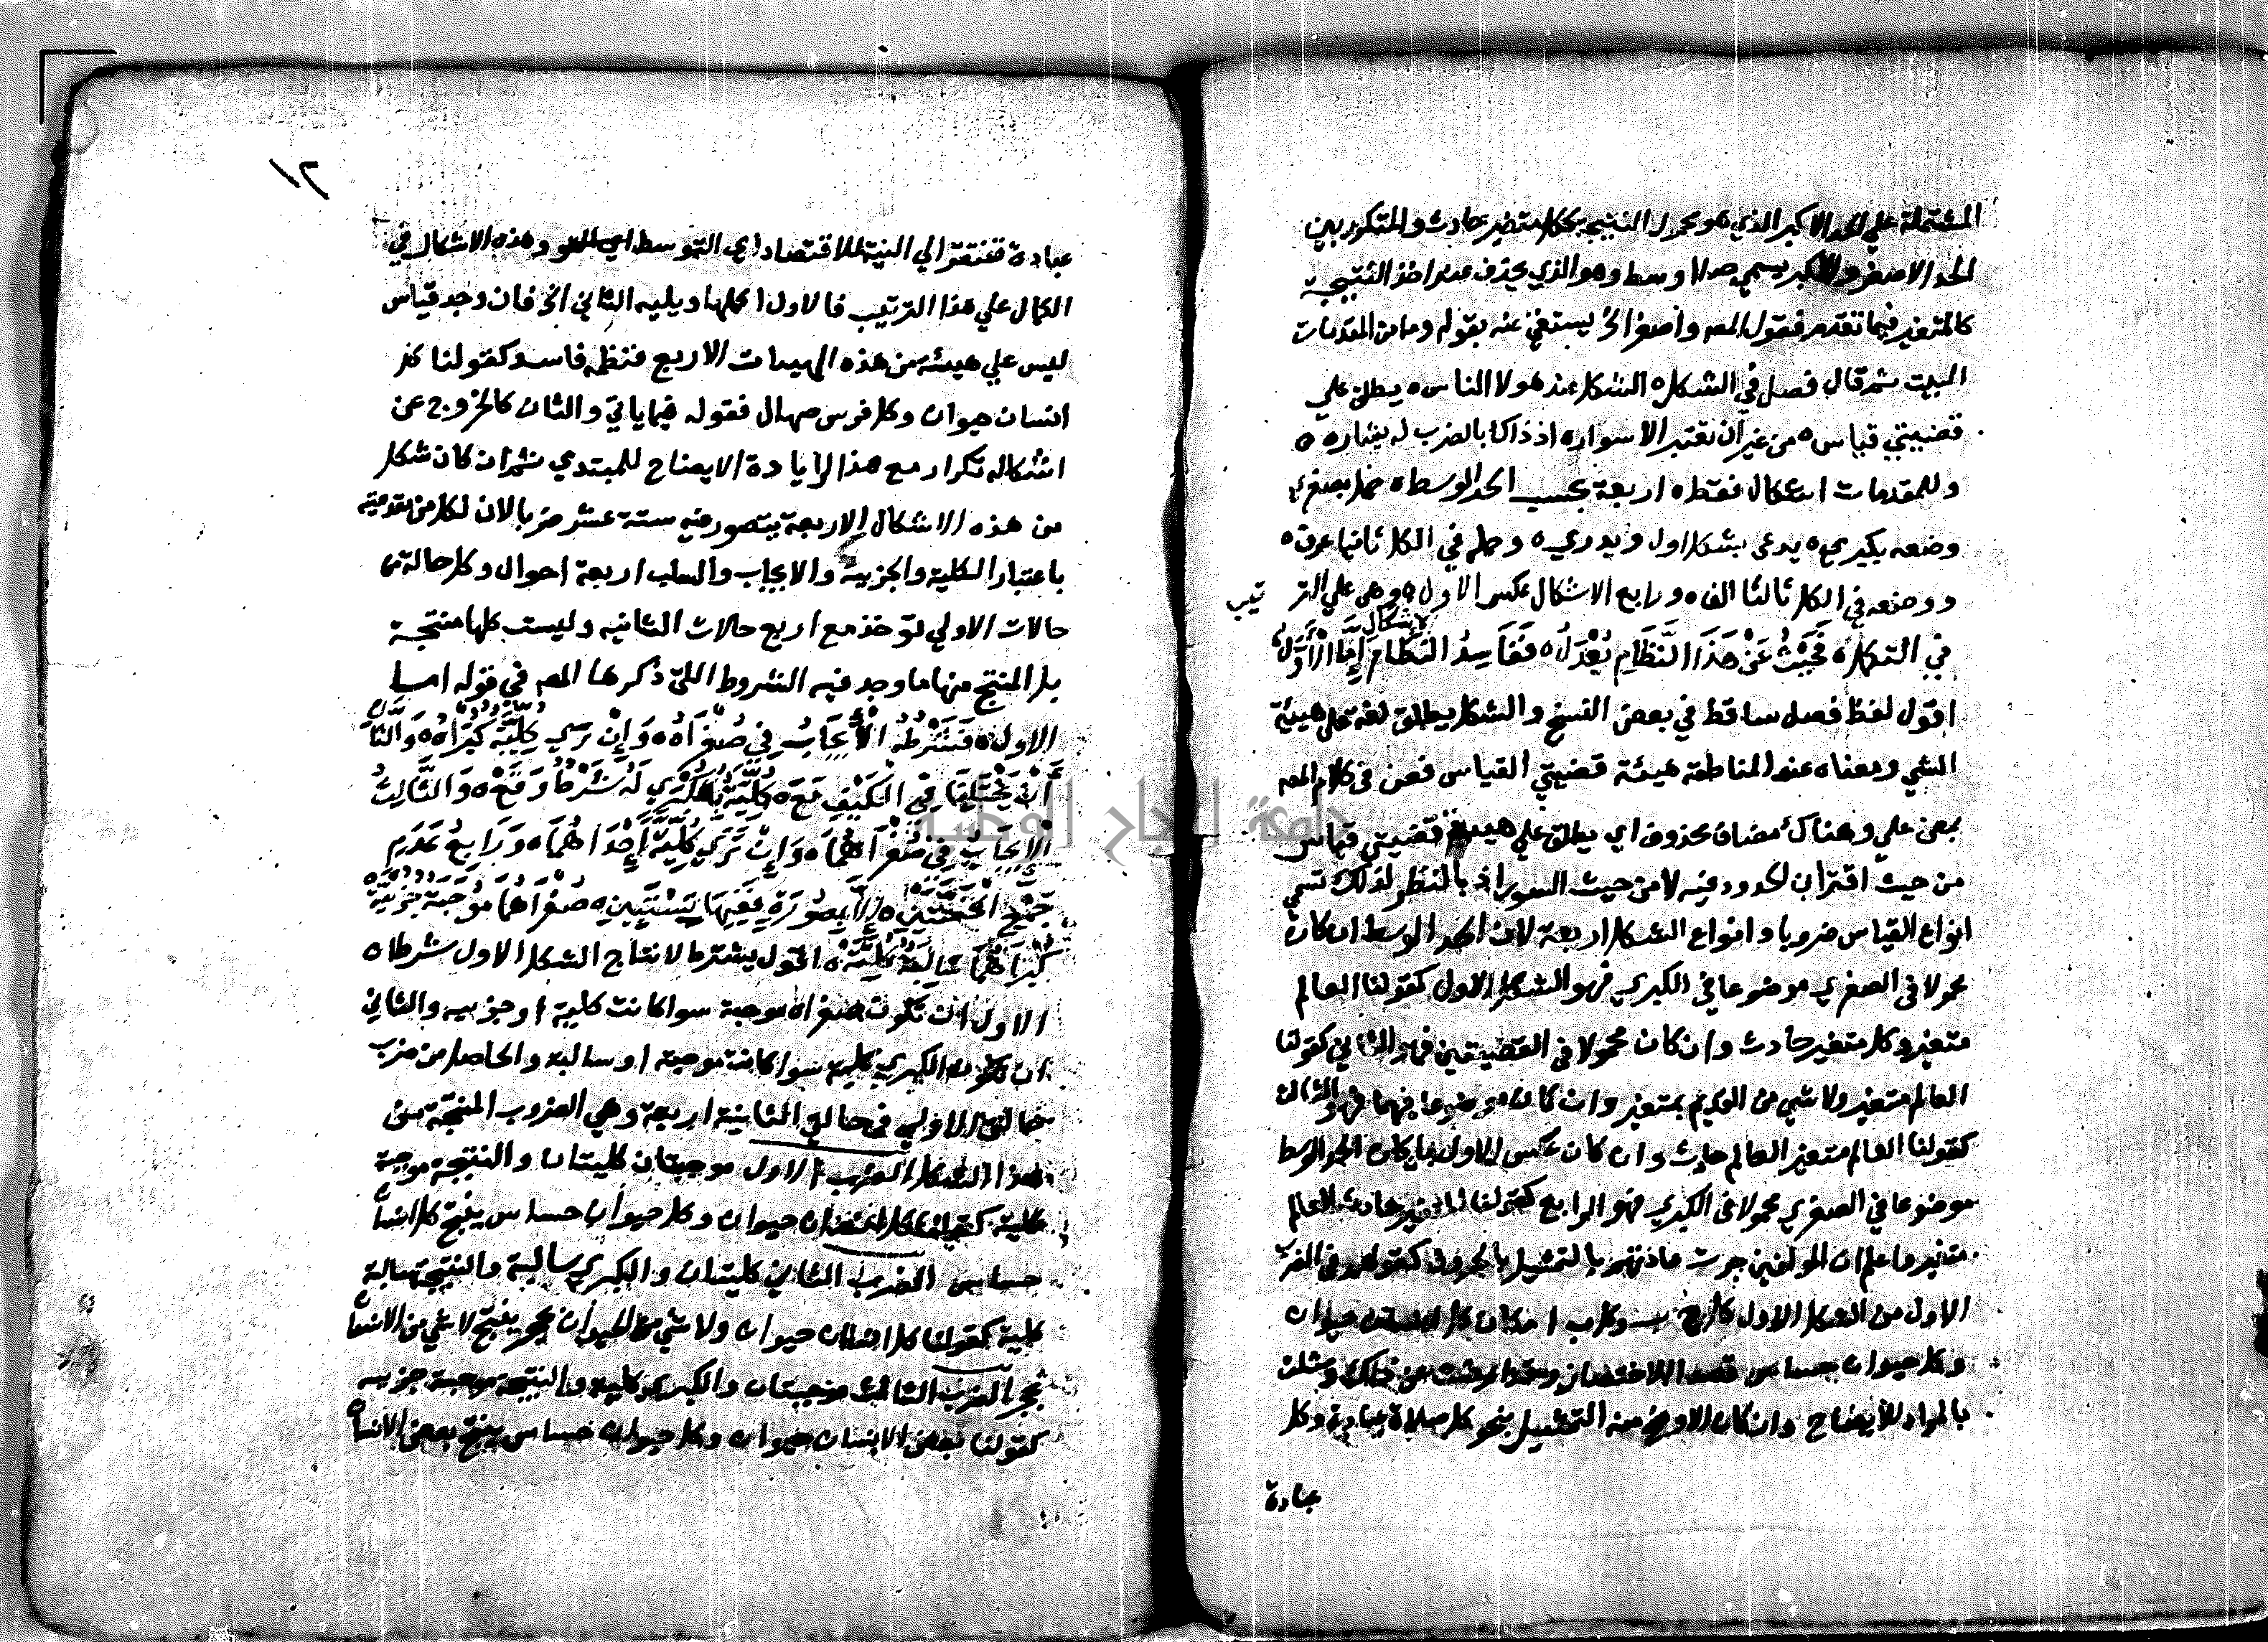 المشتملة علي الحد الاكبر الذي هو محمول النتيجة ككل متغير حادث والمتكرر بين
الحد الاصغر والاكبر يسمي حدا اوسط وهو الذي يحذف عند اخذ النتيجة
كالمتغير فيما تقدم فقول المص واصغر الخ يستغني عنه بقوله وما من المقدمات
البيت ثم قال فصل في الشكل ه الشكل عند هولا الناس ه يطلق علي
قضيتي قياس ه من غير ان تعتبر الاسوار ه اذ ذاك بالضرب له يشار ه ه
وللمقدمات اشكال فقط ه اربعة بحسب الحد الوسط ه حمل بصغري
وضعه بكبري ه يدعي بشكل اول ويدري ه وحمله في الكل ثانيا عرف ه
ووضعه في الكل ثالثا الف ه ورابع الاشكال عكس الاول ه وهي علي التر تيب
في التكمل ه فَحَيْثُ عَنْ هَذَا النَّظَامِ يُعْدَلُ ه فَفَاسِدُ النظام اَمَّا الْأَوَّلُ
لاشكال
اقول لفظ فصل ساقط في بعض النسخ والشكل يطلق لغة علي هيئة
الشي ومعناه عند المناطقة هيئة قضيتي القياس فعن في كلام المص
بمعني علي وهناك مضاف محذوف اي يطلق علي هيئة قضيتي قياس
من حيث اقتران الحدود فيه لا من حيث السور اذ بالنظر لذلك تسمي
انواع القياس ضروبا وانواع الشكل اربعة لان الحد الوسط ان كان
محمولا في الصغري موضوعا في الكبري فهو الشكل الاول كقولنا العالم
متغير وكل متغير حادث وان كان محمولا في القضيتين فهو الثاني كقولنا
العالم متغير ولا شي من القديم بمتغير وان كان موضوعا فيهما فهو الثالث
كقولنا العالم متغير العالم حادث وان كان عكس الاول بان كان الحد الوسط
موضوعا في الصغري محمولا في الكبري فهو الرابع كقولنا المتغير حادث العالم
متغير واعلم ان المولفين جرت عادتهم بالتمثيل بالحروف كقولهم في الضرب
الاول من الشكل الاول كل ج ب وكل ب ا مكان كل انسان حيوان
وكل حيوان حساس قصدا للاختصار وقد اعرضت عن ذلك ومثلت
بالمواد للايضاح وان كان الاوضح منه التمثيل بنحو كل صلاة عبادة وكل
عبادة
١٢
عبادة تفتقر الي النية للاقتصاد اي التوسط وهذه الاشكال في
الكمال علي هذا الترتيب فالاول اكملها ويليه الثاني الخ فان وجد قياس
ليس علي هيئة من هذه الهيات الاربع فنظمه فاسد كقولنا كل
انسان حيوان وكل فرس صهال فقوله فيما ياتي والثان كالخروج عن
اشكاله تكرار مع هذا لزيادة الايضاح للمبتدي ثم ان كان شكل
من هذه الاشكال الاربعة يتصور فيه ستة عشر ضربا لان لكل من مقدمتيه
باعتبار الكلية والجزيية والايجاب والسلب اربعة احوال وكل حالة من
حالات الاولي توخذ مع اربع حالات الثانيه وليست كلها منتجة
بل المنتج منها ما وجد فيه الشروط اللتي ذكرها المص في قوله اما
الاول ه فَشَرْطُهُ الْاِيجَابُ فِي صُغْرَاهُ ه وَاِنْ تَرَي كُلِّيَّةً كُبْرَاهُ ه وَالثَّانِ
أَنْ يَخْتَلِفَا فِي الْكَيْفِ مَعَ ه كُلِّيَّةِ الْكُبْرَي لَهُ شَرْطٌ وَقَعْ ه وَالثَّالِثُ
الْاِيجَابُ فِي صُغْرَاهُمَا ه وَاِنْ تَرَي كُلِّيَّةً اِحْدَاهُمَا ه وَرَابِعٌ عَدَمُ
جَمْعِ الْخِسَّتَيْنِ ه اِلَّا بِصُورَةٍ فَفِيهَا يَسْتَبِينِ ه صُغْرَاهُمَا مُوجَبَةٌ جُزْئِيَّةْ
كُبْرَاهُمَا سَالِبَةٌ كُلِّيَّةْ ه اقول يشترط لانتاج الشكل الاول شرطان
الاول ان تكون صغراه موجبة سوا كانت كلية او جزييه والثاني
ان تكون الكبري كلية سوا كانت موجبة او سالبة والحاصل من ضرب
حالتي الاولي في حالتي الثانية اربعة وهي الضروب المنتجة من
هذا الشكل الضرب الاول موجبتان كليتان والنتيجة موجبة
كلية كقولنا كل انسان حيوان وكل حيوان حساس ينتج كل انسان
حساس الضرب الثاني كليتان والكبري سالبة والنتيجة سالبة
كلية كقولنا كل انسان حيوان ولا شي من الحيوان بحجر ينتج لا شي من الانسان
بحجر الضرب الثالث موجبتان والكبري كلية والنتيجة موجبة جزييه
كقولنا بعض الانسان حيوان وكل حيوان حساس ينتج بعض الانسان
جامعة النجاح الوطنية